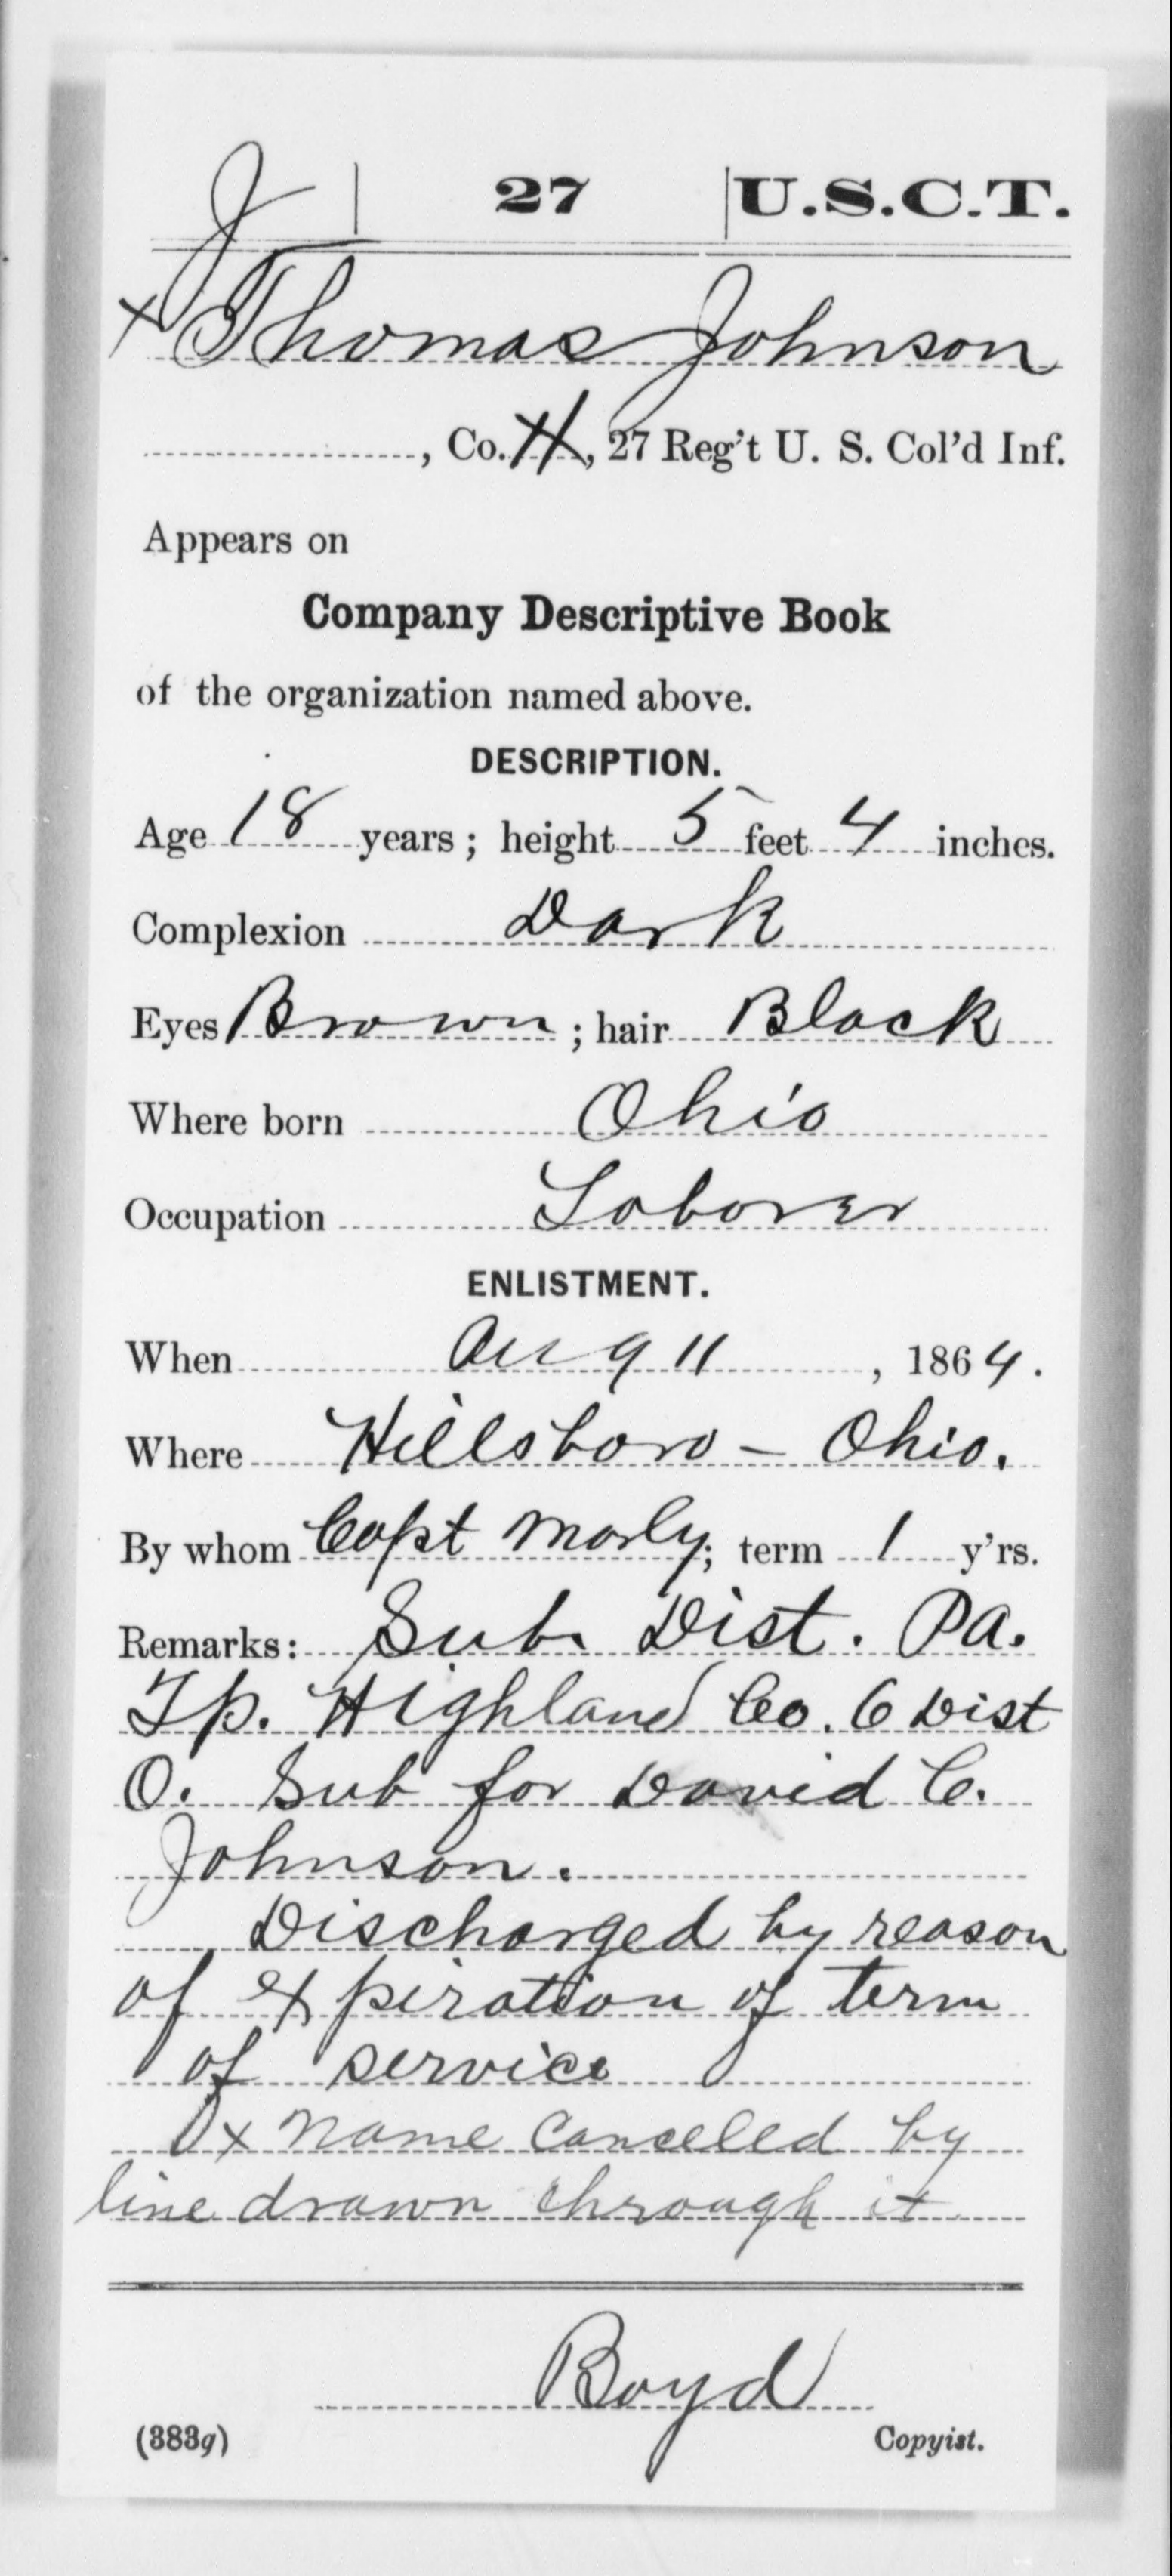 J | 27 | U.S.C.T.
x Thomas Johnson
, Co. H, 27 Reg't U. S. Col'd Inf.
Appears on
Company Descriptive Book
of the organization named above.
DESCRIPTION.
Age 18 years; height 5 feet 4 inches.
Complexion Dark
Eyes Brown; hair Black
Where born Ohio
Occupation Laborer
ENLISTMENT.
When Aug 11, 1864.
Where Hillsboro - Ohio.
By whom Capt Marly; term 1 y'rs.
Remarks: Sub. Dist. Pa.
Tp. Highland Co. 6 Dist
O. Sub for David C.
Johnson.
Discharged by reason
of expiration of term
of service
x Name canceled by
line drawn through it
Boyd
(383g) Copyist.